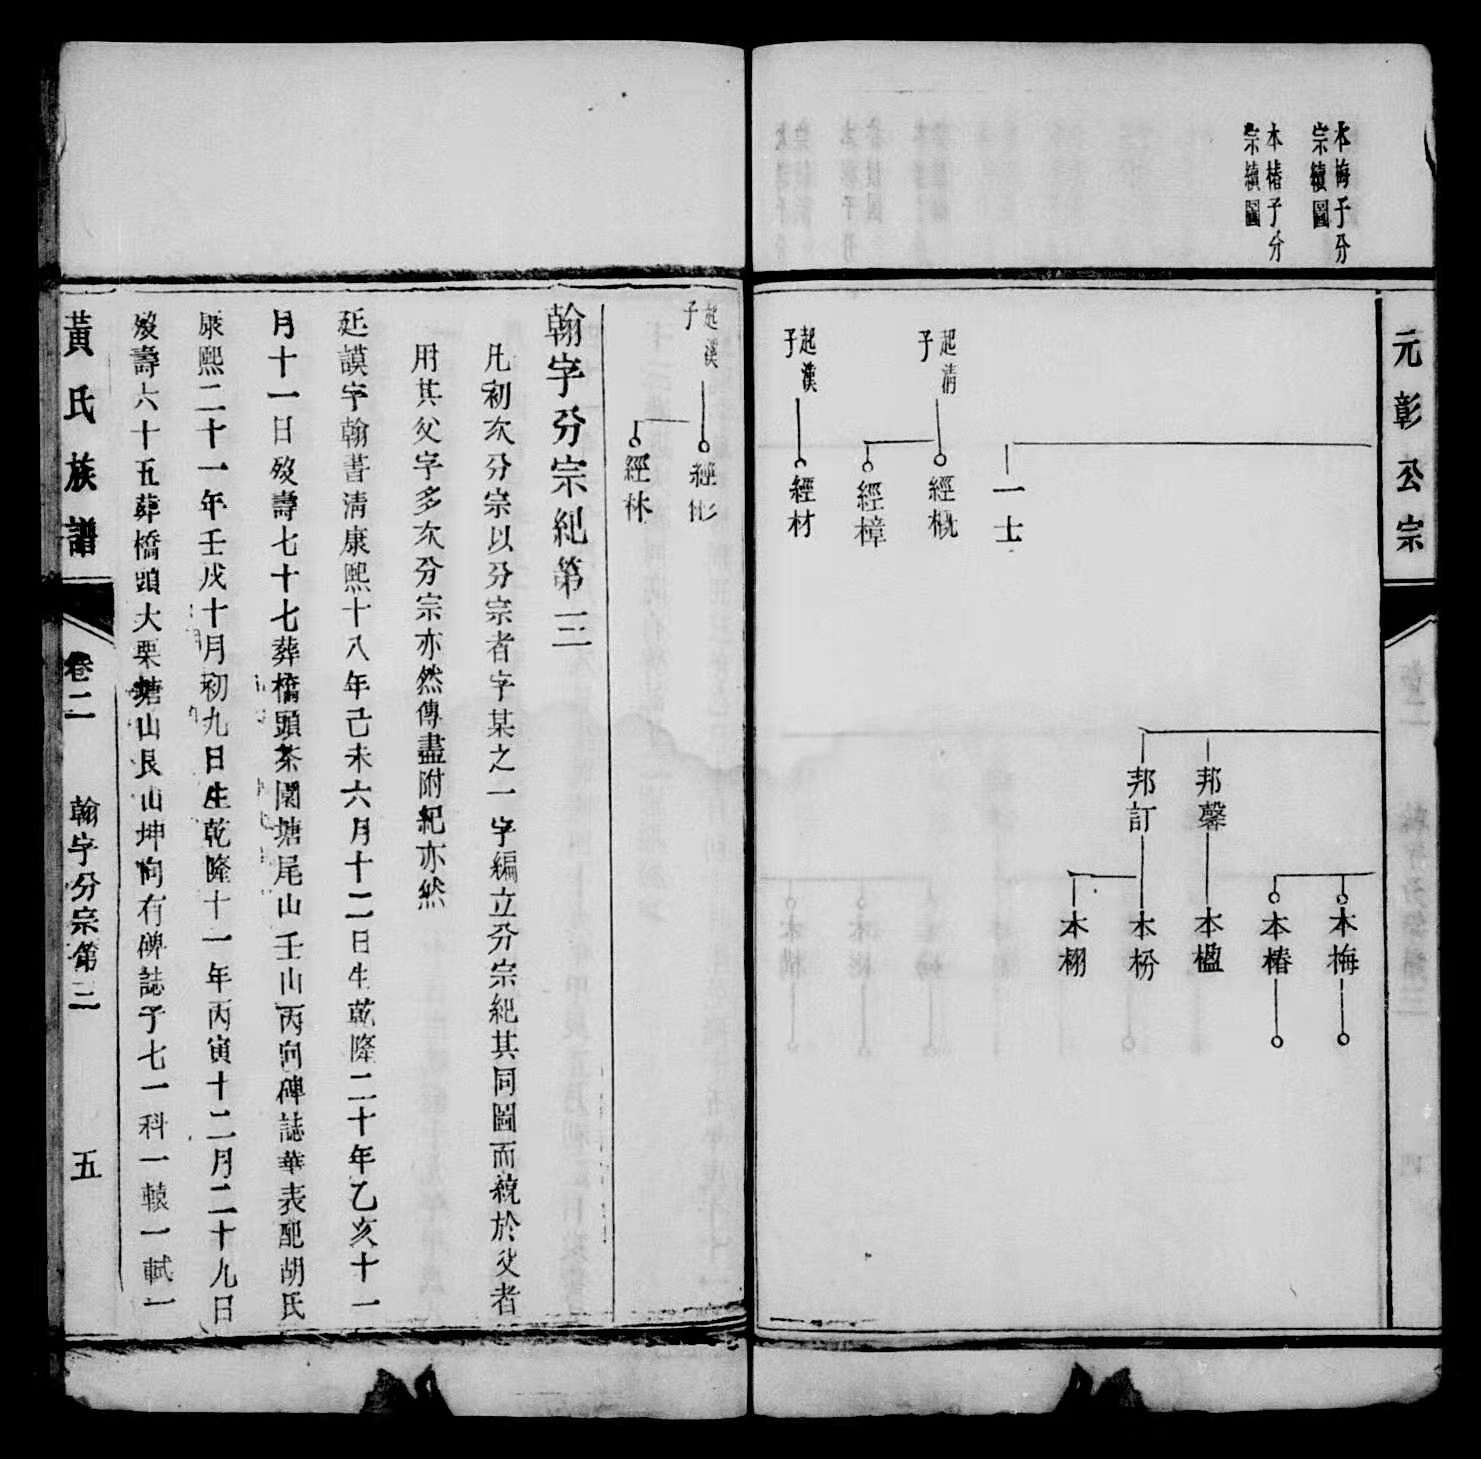 元彰公宗
本梅子分
宗續圖
本椿子分
宗續圖
本梅
本椿
邦馨
本楹
邦訂
本枌
本栩
一士
起清
子
經概
經樟
起漢
子
經材
起漢
子
經彬
經林
翰字分宗紀第三
凡初次分宗以分宗者字某之一字編立分宗紀其同圖而統於父者
用其父字多次分宗亦然傳盡附紀亦然
延謨字翰書清康熙十八年己未六月十二日生乾隆二十年乙亥十一
月十一日歿壽七十七葬橋頭茶園塘尾山壬山丙向碑誌華表配胡氏
康熙二十一年壬戌十月初九日生乾隆十一年丙寅十二月二十九日
歿壽六十五葬橋頭大栗塘山艮山坤向有碑誌子七一科一轅一軾一
黃氏族譜
卷二
翰字分宗第三
五